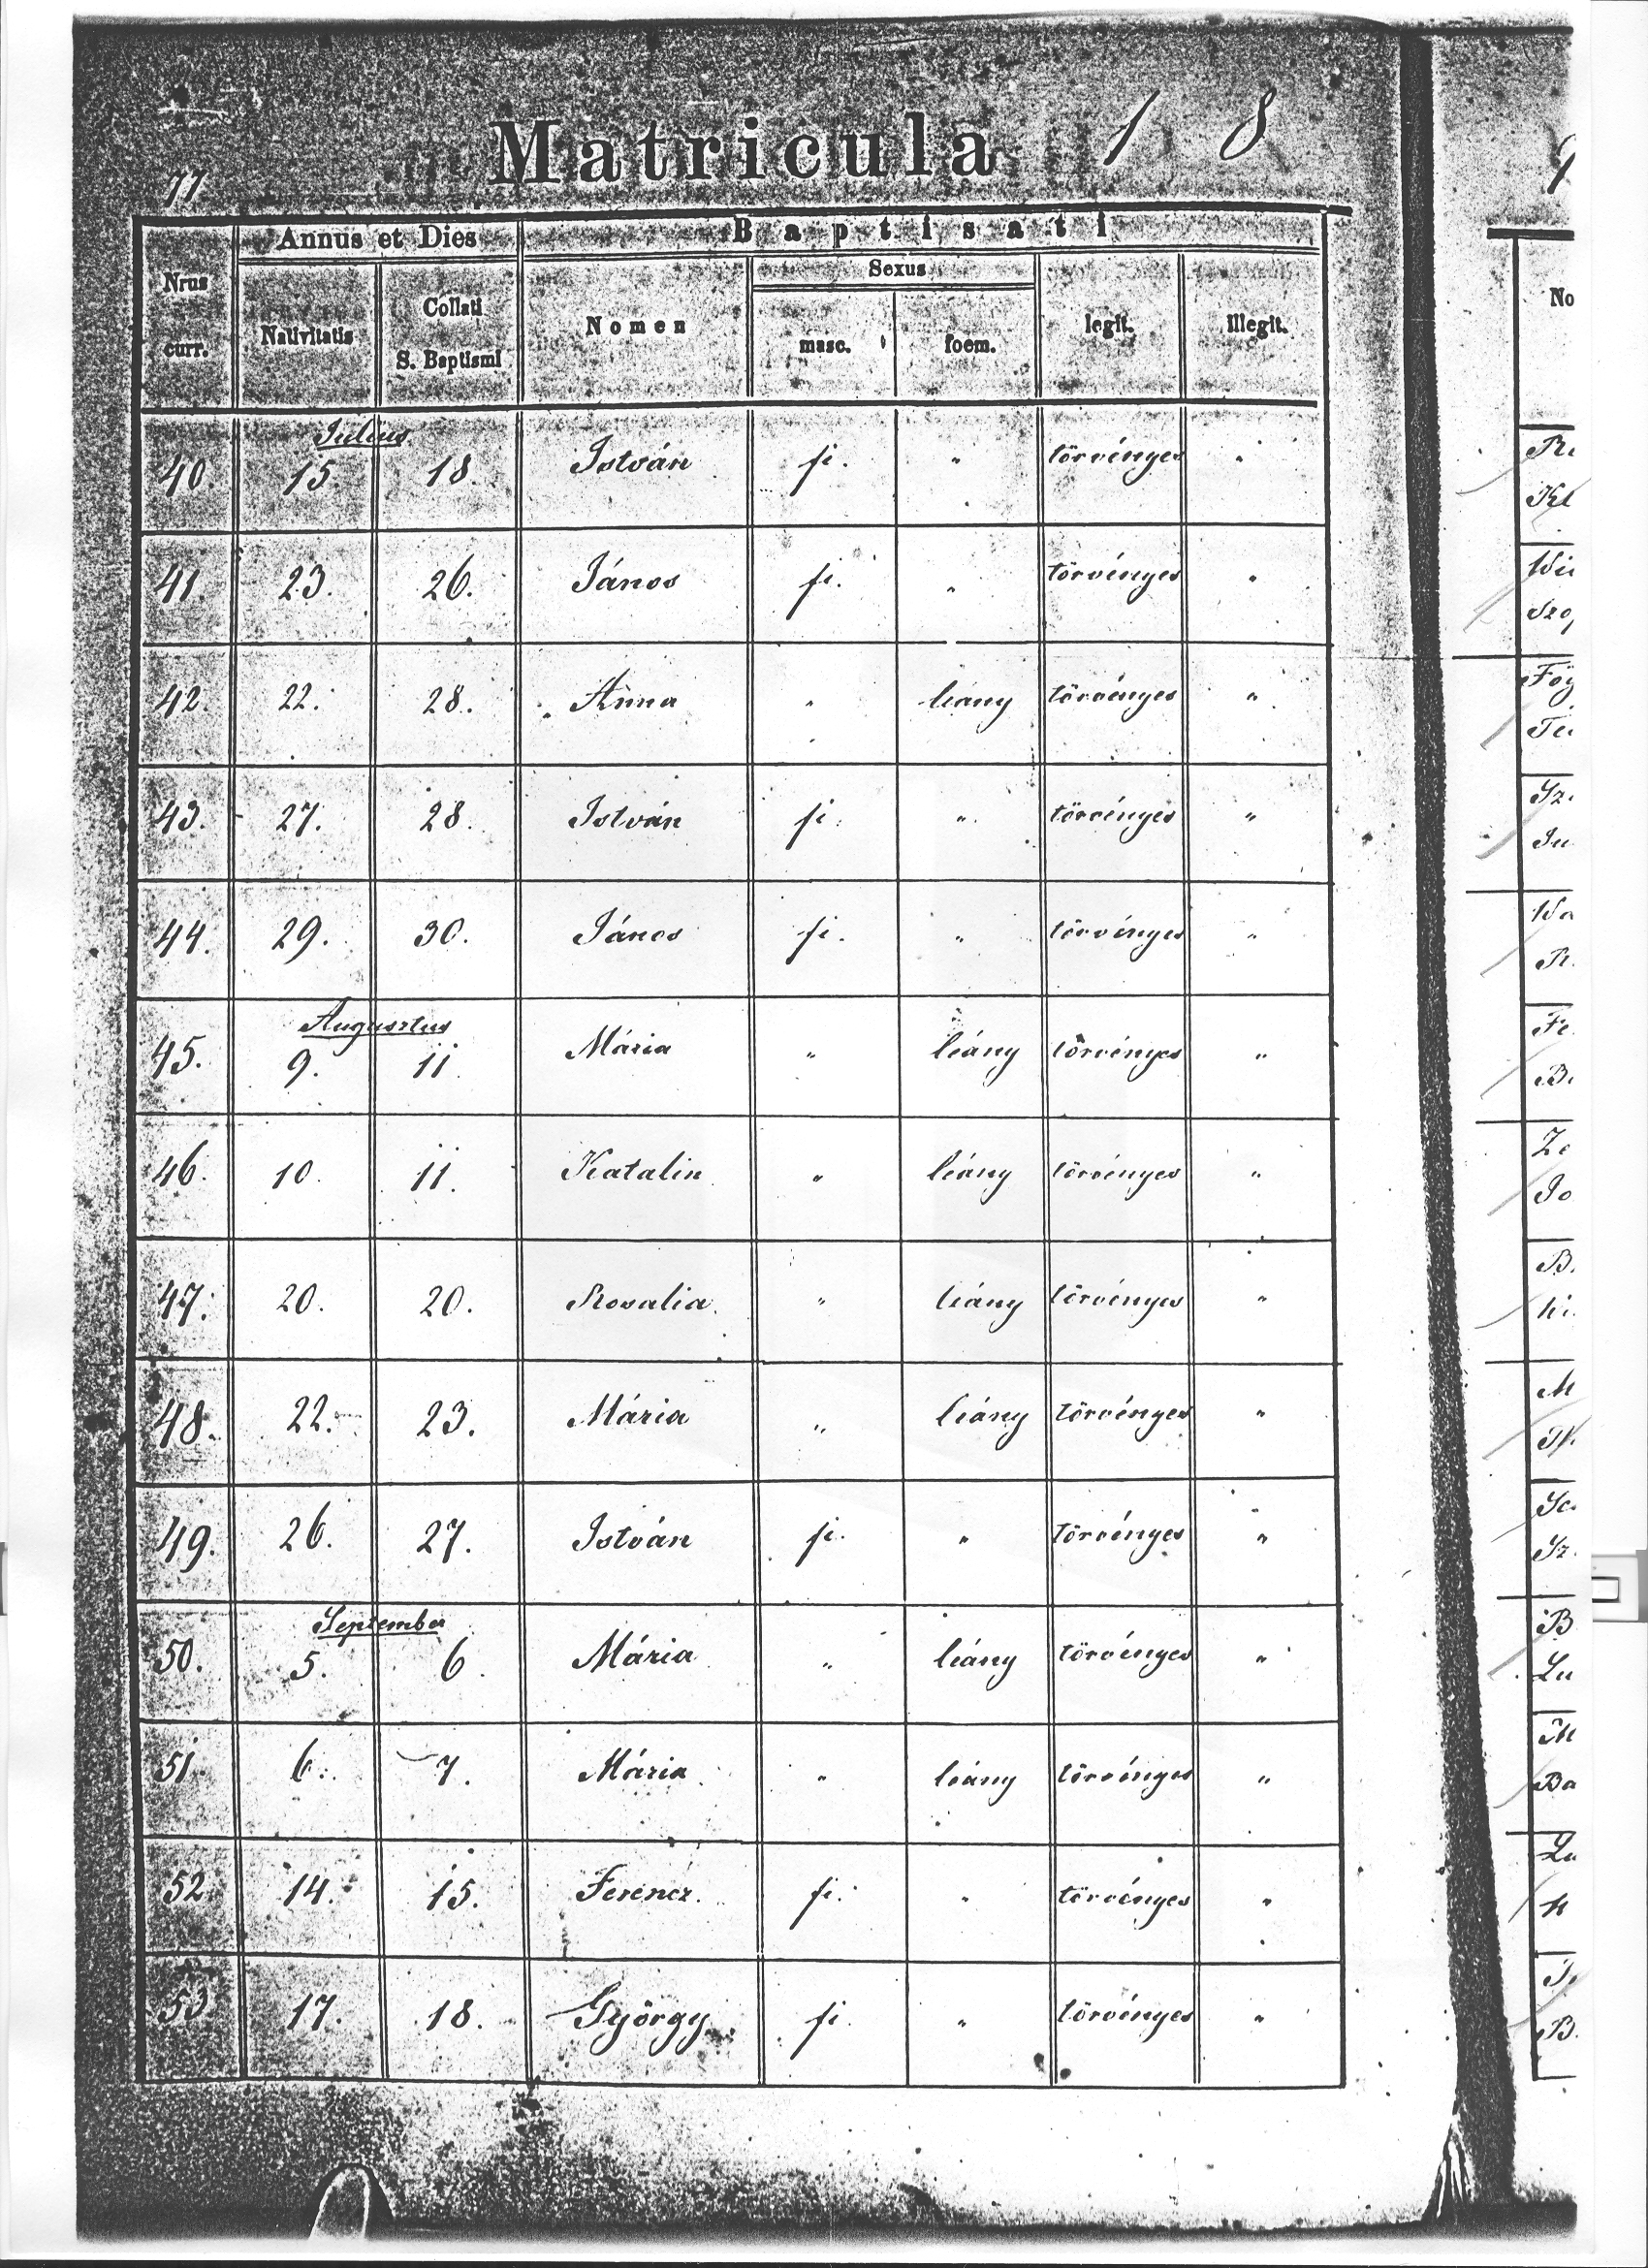 Matricula 1 8
77
Annus et Dies Baptisati
Nrus curr. Nativitatis Collati S. Baptismi Nomen Sexus masc. foem. legit. illegit.
Július
40. 15. 18. István fi. " törvényes "
41. 23. 26. János fi. " törvényes "
42 22. 28. Anna " leány törvényes "
43. 27. 28. István fi. " törvényes "
44. 29. 30. János fi. " törvényes "
Augusztus
45. 9. 11. Mária " leány törvényes "
46. 10. 11. Katalin " leány törvényes "
47. 20. 20. Rosalia " leány törvényes "
48. 22. 23. Mária " leány törvényes "
49. 26. 27. István fi. " törvényes "
September
50. 5. 6. Mária " leány törvényes "
51. 6. 7. Mária " leány törvényes "
52 14. 15. Ferencz. fi. " törvényes "
53 17. 18. György fi. " törvényes "